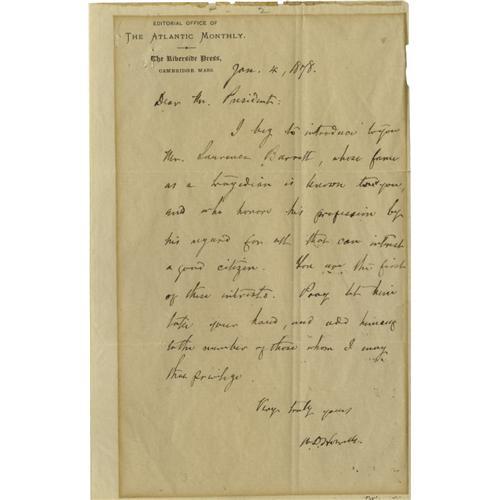 2
EDITORIAL OFFICE OF
THE ATLANTIC MONTHLY.
The Riverside Press,
CAMBRIDGE, MASS.
Jan. 4, 1878.
Dear Mr. President:
I beg to introduce to you
Mr. Lawrence Barrett, whose fame
as a tragedian is known to you,
and who honors his profession by
his regard for all that can interest
a good citizen. You are the first
of these interests. Pray let him
take your hand, and add
to the number of those whom I may
this privilege.
Very truly yours
W. D. Howells.